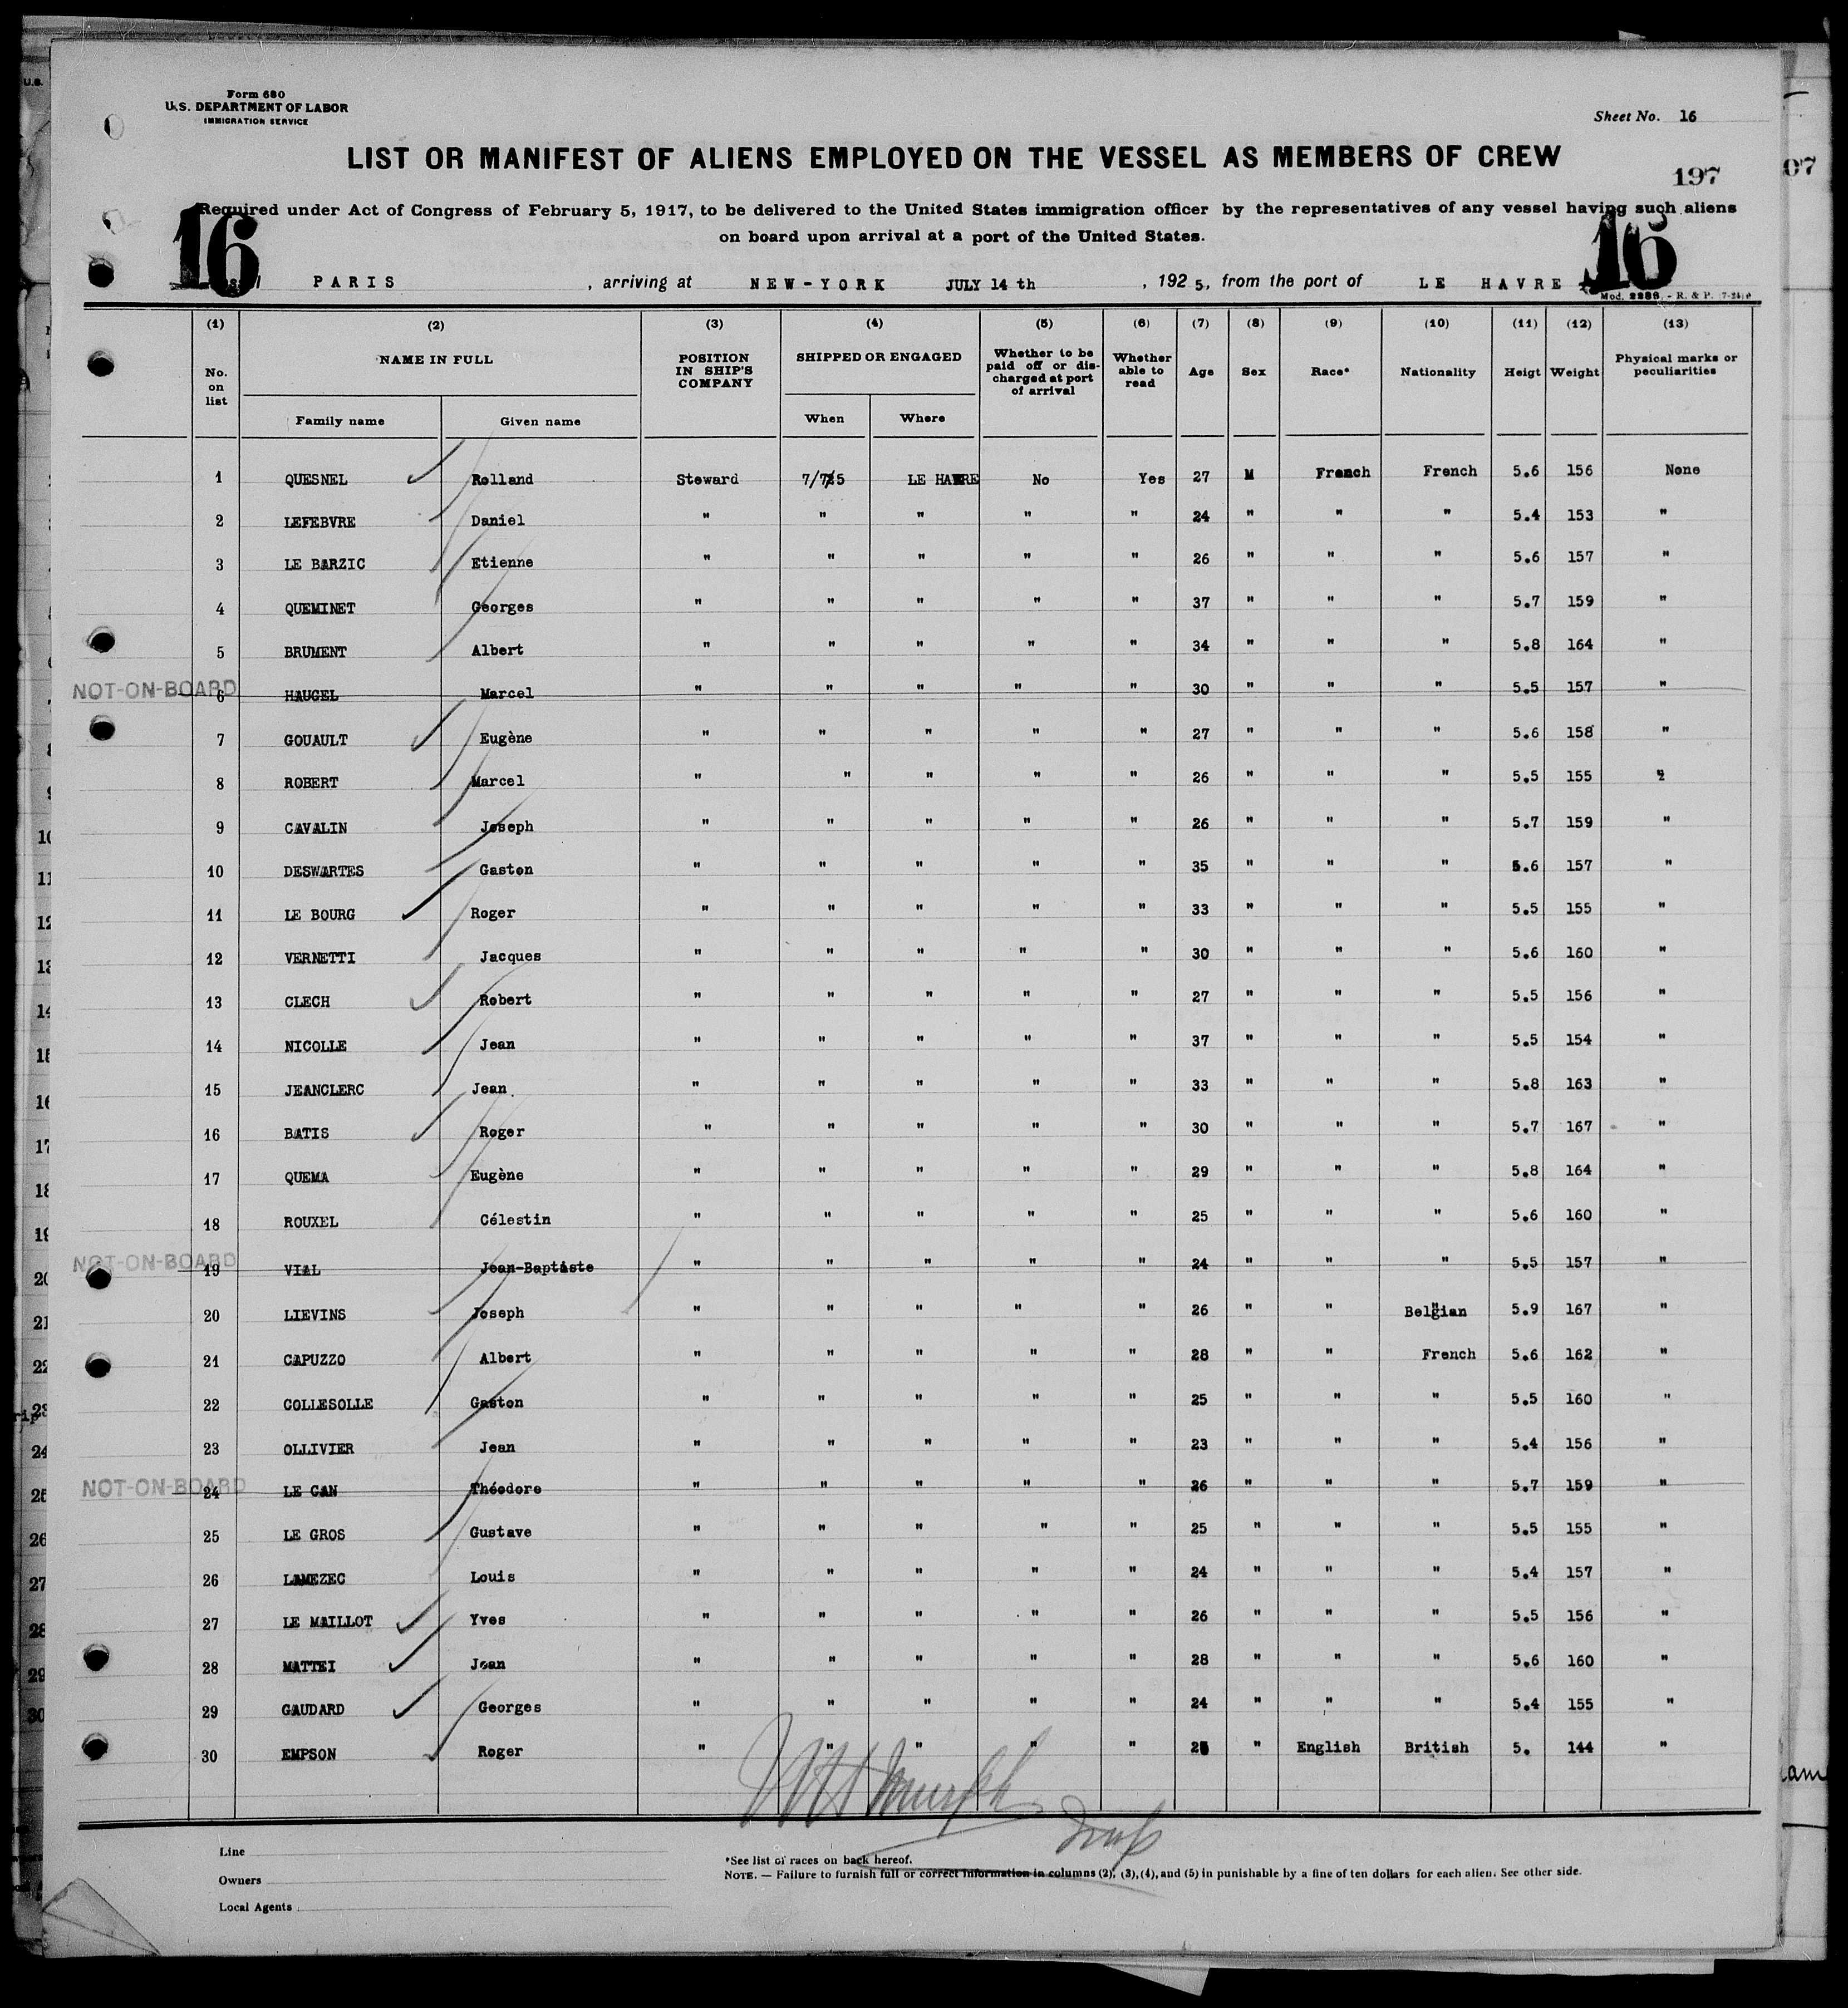 Form 680
U.S. DEPARTMENT OF LABOR
IMMIGRATION SERVICE
Sheet No. 16
LIST OR MANIFEST OF ALIENS EMPLOYED ON THE VESSEL AS MEMBERS OF CREW
197
Required under Act of Congress of February 5, 1917, to be delivered to the United States immigration officer by the representatives of any vessel having such aliens
on board upon arrival at a port of the United States.
16 16
PARIS , arriving at NEW-YORK JULY 14 th , 192 5, from the port of LE HAVRE
Mod. 2288 - R. & P.
(1) (2) (3) (4) (5) (6) (7) (8) (9) (10) (11) (12) (13)
No. on list NAME IN FULL POSITION IN SHIP'S COMPANY SHIPPED OR ENGAGED Whether to be paid off or discharged at port of arrival Whether able to read Age Sex Race* Nationality Heigt Weight Physical marks or peculiarities
Family name Given name When Where
1 QUESNEL Rolland Steward 7/725 LE HAVRE No Yes 27 M French French 5.6 156 None
2 LEFEBVRE Daniel " " " " " 24 " " " 5.4 153 "
3 LE BARZIC Etienne " " " " " 26 " " " 5.6 157 "
4 QUEMINET Georges " " " " " 37 " " " 5.7 159 "
5 BRUMENT Albert " " " " " 34 " " " 5.8 164 "
NOT-ON-BOARD 6 HAUGEL Marcel " " " " " 30 " " " 5.5 157 "
7 GOUAULT Eugène " " " " " 27 " " " 5.6 158 "
8 ROBERT Marcel " " " " " 26 " " " 5.5 155 "
9 CAVALIN Joseph " " " " " 26 " " " 5.7 159 "
10 DESWARTES Gaston " " " " " 35 " " " 5.6 157 "
11 LE BOURG Roger " " " " " 33 " " " 5.5 155 "
12 VERNETTI Jacques " " " " " 30 " " " 5.6 160 "
13 CLECH Robert " " " " " 27 " " " 5.5 156 "
14 NICOLLE Jean " " " " " 37 " " " 5.5 154 "
15 JEANCLERC Jean " " " " " 33 " " " 5.8 163 "
16 BATIS Roger " " " " " 30 " " " 5.7 167 "
17 QUEMA Eugène " " " " " 29 " " " 5.8 164 "
18 ROUXEL Célestin " " " " " 25 " " " 5.6 160 "
NOT-ON-BOARD 19 VIAL Jean-Baptiste " " " " " 24 " " " 5.5 157 "
20 LIEVINS Joseph " " " " " 26 " " Belgian 5.9 167 "
21 CAPUZZO Albert " " " " " 28 " " French 5.6 162 "
22 COLLESOLLE Gaston " " " " " 25 " " " 5.5 160 "
23 OLLIVIER Jean " " " " " 23 " " " 5.4 156 "
NOT-ON-BOARD 24 LE CAN Théodore " " " " " 26 " " " 5.7 159 "
25 LE GROS Gustave " " " " " 25 " " " 5.5 155 "
26 LAMEZEC Louis " " " " " 24 " " " 5.4 157 "
27 LE MAILLOT Yves " " " " " 26 " " " 5.5 156 "
28 MATTEI Jean " " " " " 28 " " " 5.6 160 "
29 GAUDARD Georges " " " " " 24 " " " 5.4 155 "
30 EMPSON Roger " " " " " " English British 5. 144 "
Line
Owners
Local Agents
*See list of races on back hereof.
NOTE. — Failure to furnish full or correct information in columns (2), (3), (4), and (5) in punishable by a fine of ten dollars for each alien. See other side.